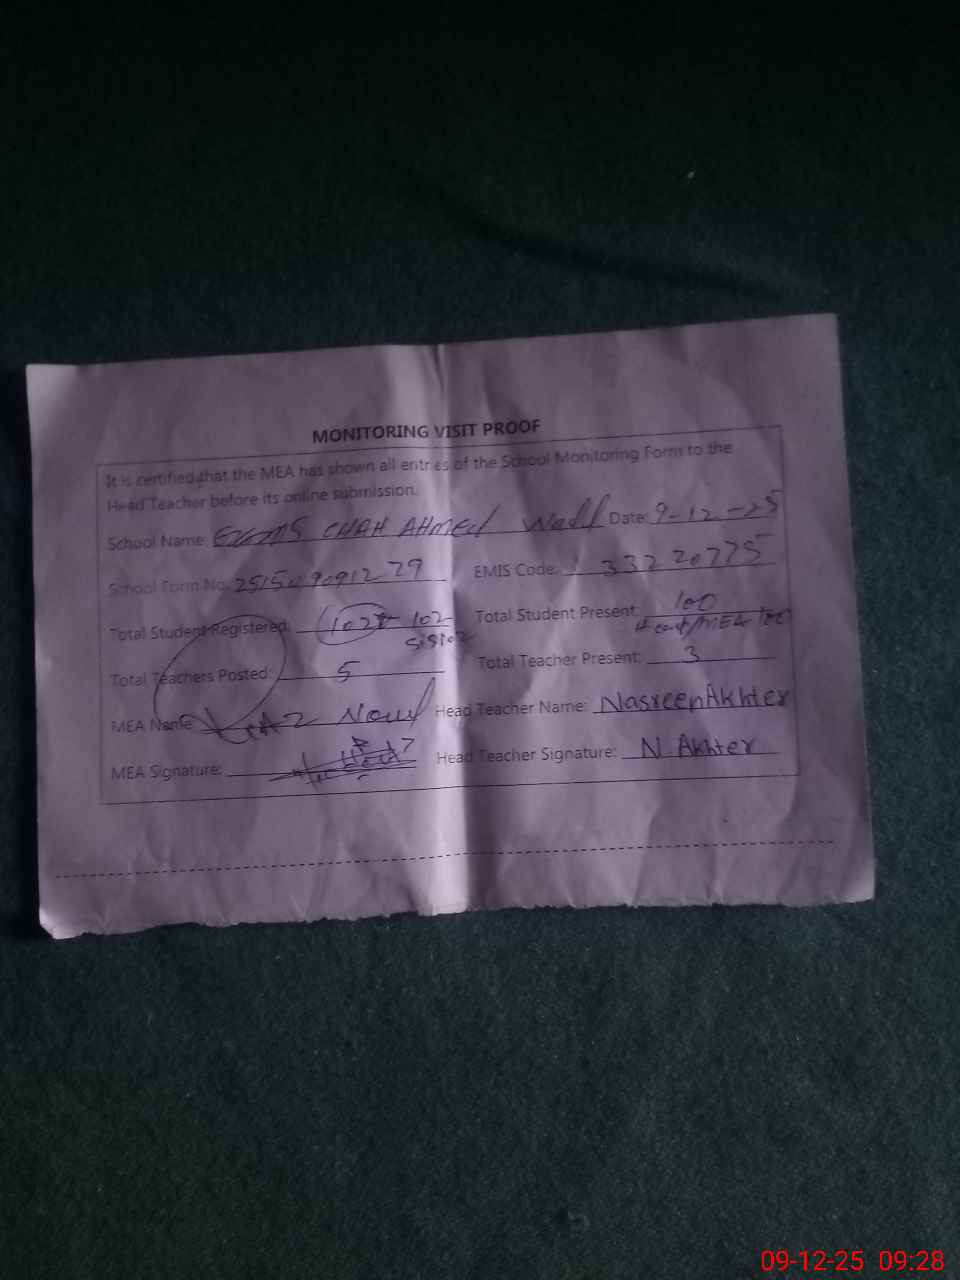 MONITORING VISIT PROOF
It is certified that the MEA has shown all entries of the School Monitoring Form to the
Head Teacher before its online submission.
School Name: CHAH AHMED Date: 9-12-25
School Form No. EMIS Code: 33220775
Total Student Registered: 102 Total Student Present: 100
SIS 102
Total Teachers Posted: 5 Total Teacher Present: 3
MEA Name Head Teacher Name: Nasreen Akhter
MEA Signature: Head Teacher Signature: N. Akhter
09-12-25 09:28